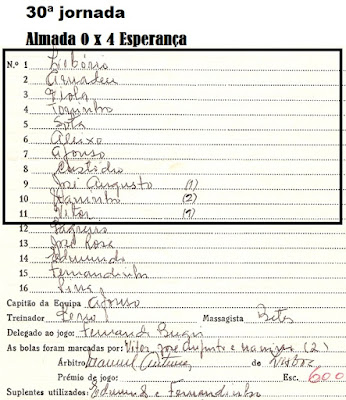 30ª jornada
Almada 0 x 4 Esperança
N.º 1 Libório
2 Amadeu
3 Fiola
4 Toquinho
5 Sota
6 Aleixo
7 Afonso
8 Custódio
9 José Augusto (1)
10 (2)
11 Vitor (1)
12
13 José Rosa
14 Edmundo
15 Fernandinho
16 Pina
Capitão da Equipa Afonso
Treinador Massagista
Delegado ao jogo: Fernando
As bolas foram marcadas por: Vitor, José Augusto e (2)
Árbitro Manuel de Lisboa
Prémio de jogo: Esc. 600
Suplentes utilizados: Edmundo e Fernandinho